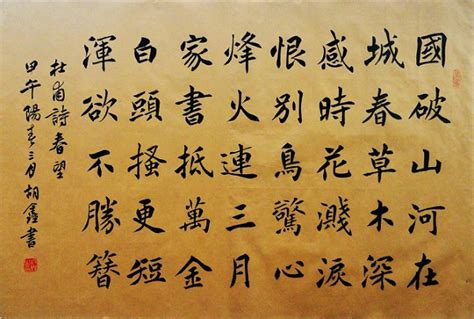 國破山河在
城春草木深
感時花濺淚
恨別鳥驚心
烽火連三月
家書抵萬金
白頭搔更短
渾欲不勝簪
杜甫詩春望
甲午陽春三月胡鑫書